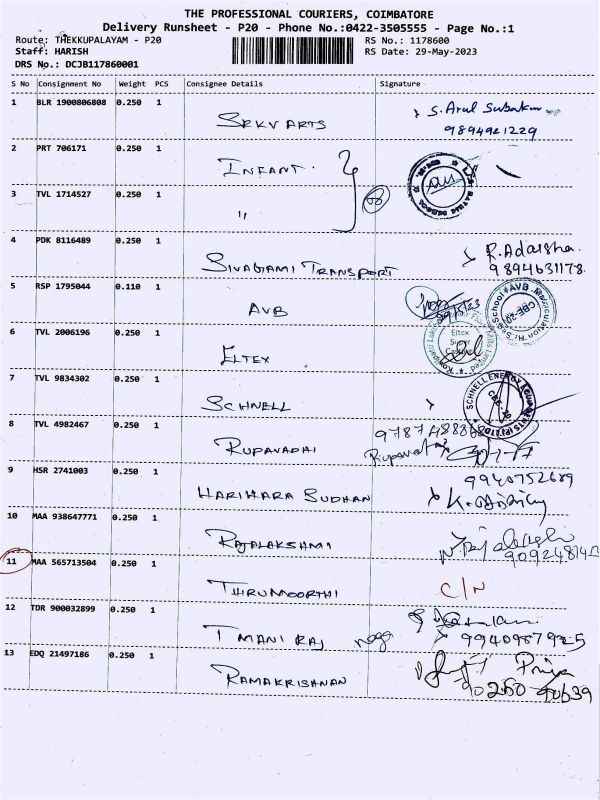 THE PROFESSIONAL COURIERS, COIMBATORE
Delivery Runsheet - P20 - Phone No.:0422-3505555 - Page No.:1
Route: THEKKUPALAYAM - P20 RS No.: 1178600
Staff: HARISH RS Date: 29-May-2023
DRS No.: DCJB117860001
S No Consignment No Weight PCS Consignee Details Signature
1 BLR 1900806808 0.250 1 SRKV ARTS S. Arul
9894921229
2 PRT 706171 0.250 1 INFANT.
3 TVL 1714527 0.250 1 "
4 PDK 8116489 0.250 1 SIVAGAMI TRANSPORT R. Adarsha.
9894631178.
5 RSP 1795044 0.110 1 AVB
6 TVL 2006196 0.250 1 ELTEX Eltex
7 TVL 9834302 0.250 1 SCHNELL SCHNELL ENERGY
8 TVL 4982467 0.250 1 RUPAVADAI
9 HSR 2741003 0.250 1 HARIHARA SUDHAN 9940752689
10 MAA 938647771 0.250 1 RAJALAKSHMI
11 MAA 565713504 0.250 1 THIRUMOORTHI C/N
12 TDR 900032899 0.250 1 T MANI RAJ naga
13 EDQ 21497186 0.250 1 RAMAKRISHNAN Priya